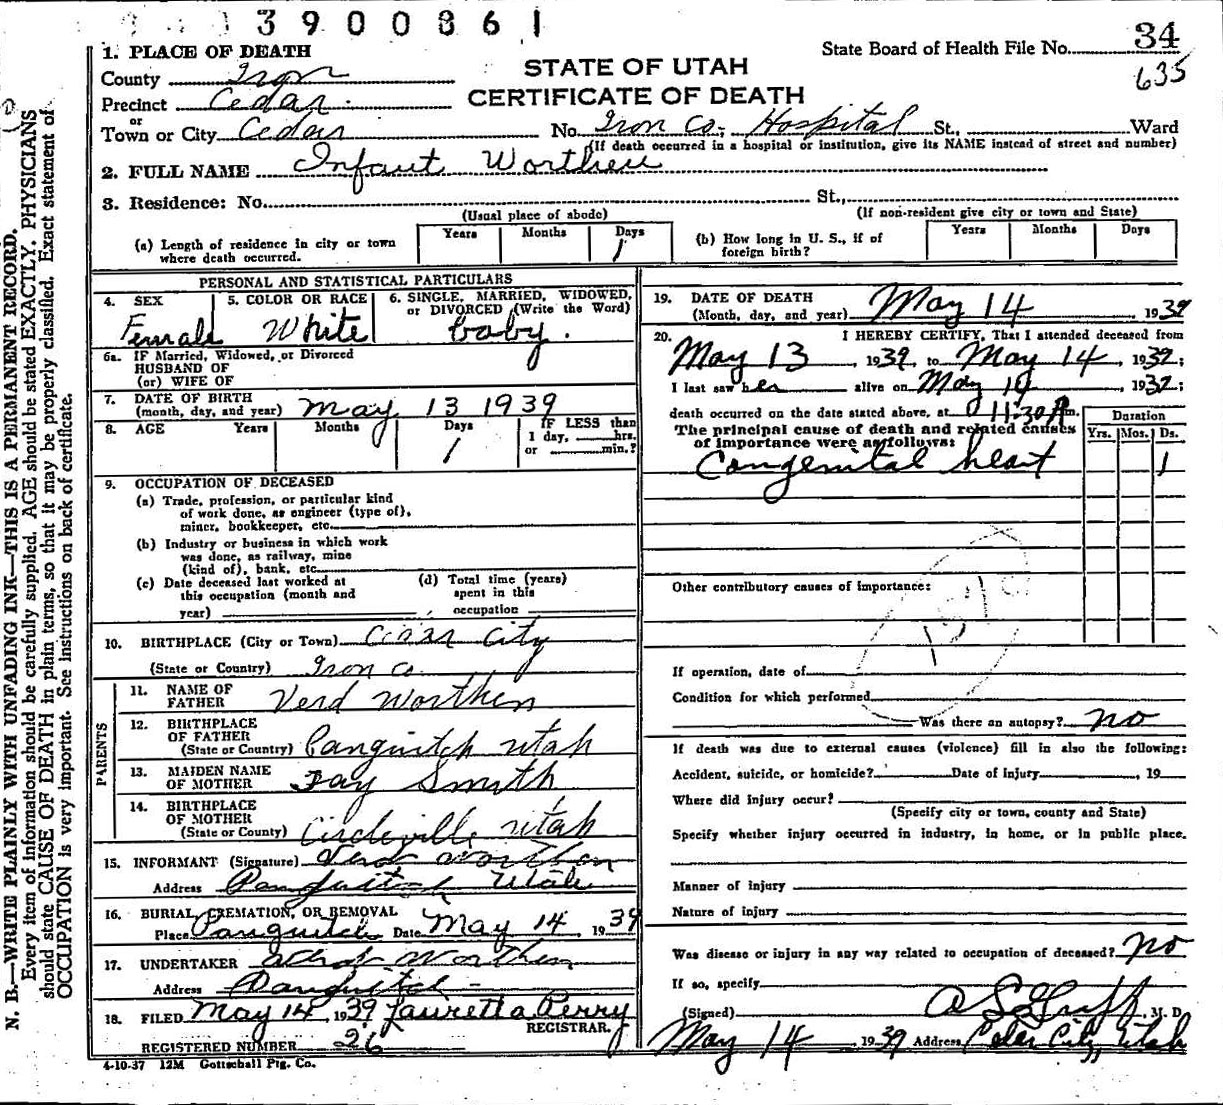 3900861
State Board of Health File No. 34
635
STATE OF UTAH
CERTIFICATE OF DEATH
1. PLACE OF DEATH
County Iron
Precinct Cedar
or
Town or City Cedar No. Iron Co. Hospital St., Ward
(If death occurred in a hospital or institution, give its NAME instead of street and number)
2. FULL NAME Infant Worthen
3. Residence: No. St.,
(Usual place of abode) (If non-resident give city or town and State)
(a) Length of residence in city or town where death occurred. Years Months Days 1
(b) How long in U. S., if of foreign birth? Years Months Days
PERSONAL AND STATISTICAL PARTICULARS
4. SEX Female
5. COLOR OR RACE White
6. SINGLE, MARRIED, WIDOWED, or DIVORCED (Write the Word) baby.
6a. IF Married, Widowed, or Divorced
HUSBAND OF
(or) WIFE OF
7. DATE OF BIRTH
(month, day, and year) May 13 1939
8. AGE Years Months Days 1 IF LESS than 1 day, hrs. or min.?
9. OCCUPATION OF DECEASED
(a) Trade, profession, or particular kind
of work done, as engineer (type of),
miner, bookkeeper, etc.
(b) Industry or business in which work
was done, as railway, mine
(kind of), bank, etc.
(c) Date deceased last worked at
this occupation (month and
year)
(d) Total time (years)
spent in this
occupation
10. BIRTHPLACE (City or Town) Cedar City
(State or Country) Iron Co.
PARENTS
11. NAME OF
FATHER Verd Worthen
12. BIRTHPLACE
OF FATHER
(State or Country) Panguitch Utah
13. MAIDEN NAME
OF MOTHER Fay Smith
14. BIRTHPLACE
OF MOTHER
(State or County) Circleville Utah
15. INFORMANT (Signature) Verd Worthen
Address Panguitch Utah
16. BURIAL, CREMATION, OR REMOVAL
Place Panguitch Date May 14, 1939
17. UNDERTAKER Worthen
Address Panguitch
18. FILED May 14 1939 Lauretta Perry
REGISTRAR.
REGISTERED NUMBER 26
4-10-37 12M Gottschall Ptg. Co.
19. DATE OF DEATH
(Month, day, and year) May 14 1939
20. I HEREBY CERTIFY, That I attended deceased from
May 13, 1939, to May 14, 1939;
I last saw her alive on May 14, 1939;
death occurred on the date stated above, at 11:30 A m.
The principal cause of death and related causes
of importance were as follows:
Duration
Yrs. Mos. Ds.
Congenital heart 1
Other contributory causes of importance:
If operation, date of
Condition for which performed
Was there an autopsy? no
If death was due to external causes (violence) fill in also the following:
Accident, suicide, or homicide? Date of injury, 19
Where did injury occur?
(Specify city or town, county and State)
Specify whether injury occurred in industry, in home, or in public place.
Manner of injury
Nature of injury
Was disease or injury in any way related to occupation of deceased? no
If so, specify
(Signed) , M. D.
May 14, 1939 Address Cedar City, Utah
N. B.—WRITE PLAINLY WITH UNFADING INK—THIS IS A PERMANENT RECORD.
Every item of information should be carefully supplied. AGE should be stated EXACTLY. PHYSICIANS
should state CAUSE OF DEATH in plain terms, so that it may be properly classified. Exact statement of
OCCUPATION is very important. See instructions on back of certificate.